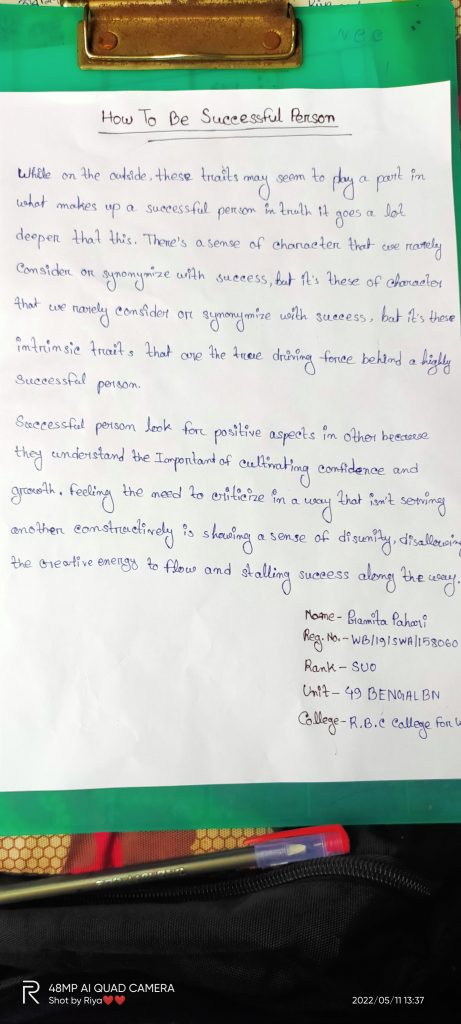 How To Be Successful Person
While on the outside, these traits may seem to play a part in
what makes up a successful person in truth it goes a lot
deeper that this. There's a sense of character that we rarely
Consider or synonymize with success, but it's these of character
that we rarely consider or symonymize with success, but it's these
intrimsic traits that are the true driving force behind a highly
Successful person.
Successful person look for positive aspects in other because
they understand the Important of cultivating confidence and
growth. Feeling the need to criticize in a way that isn't serving
another constructively is showing a sense of disunity, disallowing
the creative energy to flow and stalling success along the way.
Name - Bramita Pahari
Reg. No. - WB/19/SWA/158060
Rank - SUO
Unit - 49 BENGAL BN
College - R.B.C College For W
48MP AI QUAD CAMERA
Shot by Riya❤❤
2022/05/11 13:37